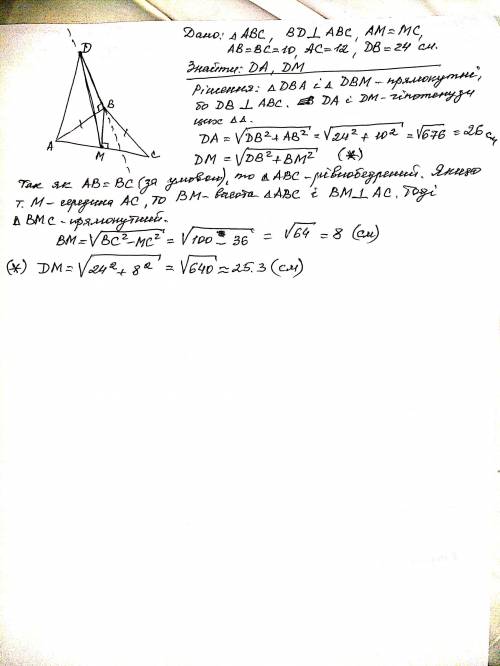 D
B
A
M
C
Дано: △ABC, BD⊥ABC, AM=MC,
AB=BC=10, AC=12, DB=24 см.
Знайти: DA, DM
Рішення: △DBA і △DBM - прямокутні,
бо DB⊥ABC. DA і DM - гіпотенузи
цих △△.
DA = √DB²+AB² = √24²+10² = √676 = 26 см
DM = √DB²+BM² (*)
Так як AB=BC (за умовою), то △ABC - рівнобедрений. Якщо
т. M - середина AC, то BM - висота △ABC і BM⊥AC. Тоді
△BMC - прямокутний.
BM = √BC²-MC² = √100-36 = √64 = 8 (см)
(*) DM = √24²+8² = √640 ≈ 25.3 (см)